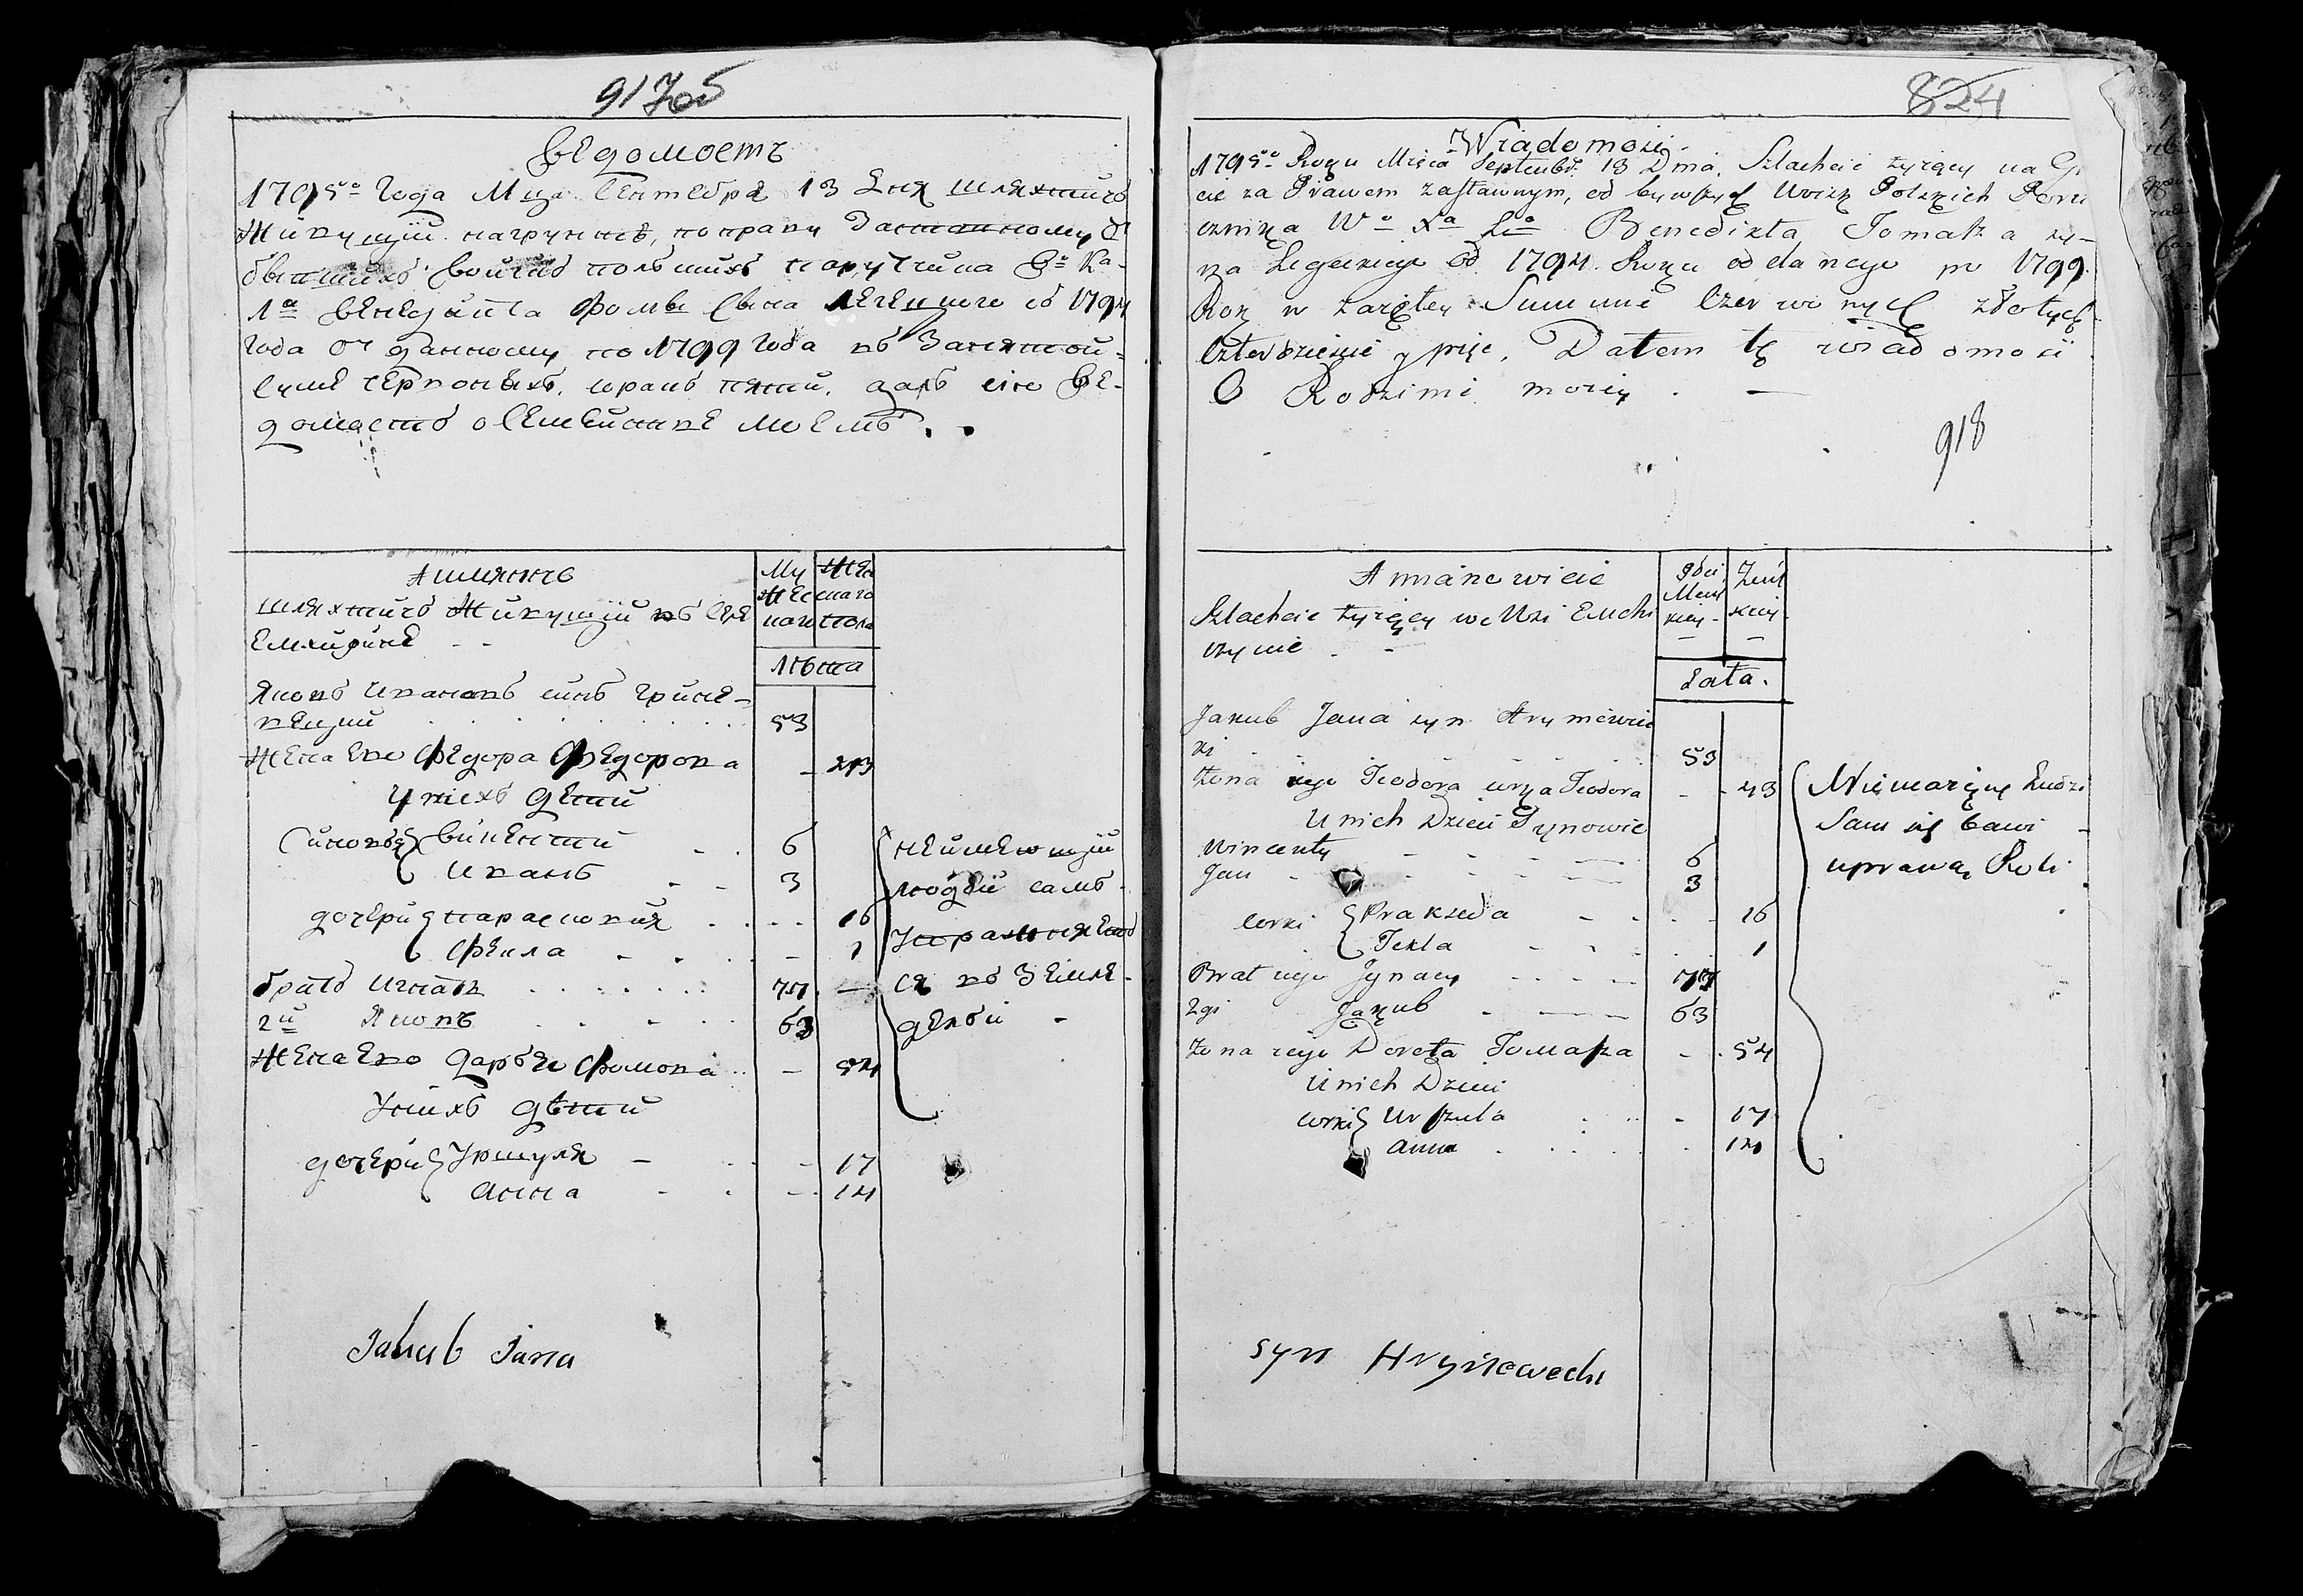 917об
Ведомость
1795го Года Мца Сентебря 13 Дня шляхтичъ
Живущий нагрунтѣ, поправу Заставному От
бывшихъ войскъ польскихъ поручика
Бенедикта Фомы Сына с 1794
Года От данному по 1799 Года въ Заклятой
Суме червоныхъ, сорокъ пяти, далъ сию Ве-
домость о Семействе моемъ.
шляхтичъ Живущий въ Селе
Яковъ Ивановъ синъ Грине-
вецкий 53
Жена Ево Федора Федорова - 43
У нихъ Дети
Синовья Викентий 6
Иванъ 3
дочери Парасковия 16
Фекла 1
братъ Игнати 77
2й Яковъ 63
Жена Ево Дарья Фомова - 54
У нихъ дѣти
дочери Уршуля - 17
Анна - 14
Му
жес
каго
Жен
скаго
Пола
лѣта
неимеющий
людей самъ
управляет
ся въ Земле-
делви
Jakub Jana
824
Wiadomosc
1795o Roku Msca Septembr. 13 Dnia, Szlachcic zyiący na Gr
cie za Prawem zastawnym, od bywszych Woisk Polskich Poru
cznika Wo Benedikta Tomasza sy-
na od 1794. Roku od danego po 1799.
Rok w zaręTey Summie Czerwonych złotych
Czterdziesci y pięc, Datem tę wiadomosci
O Rodzinie moiey. —
918
Szlachcic zyiący we Wsi
czynie - -
Płci
Męs
kiey
Żeńs
kiey
Lata.
Jakub Jana syn Hryniewic
ki 53
Żona iego Teodora curka Teodora - 43
U nich Dzieci Synowie
Wincenty 6
Jan 3
corki Prakseda 16
Tekla 1
Brat iego Jgnacy 77
2gi Jakub 63
Żona iego Dorota Tomasza - 54
U nich Dzieci
corki Urszula - 17
Anna 14
Niemaiący Ludzi
Sam się bawi -
uprawą Roli.
syn Hryniewecki